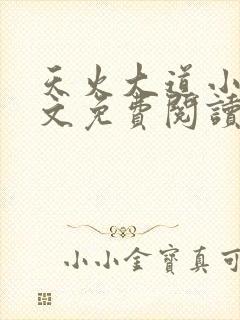 天火大道小
文免費閱讀
小小金寶真可